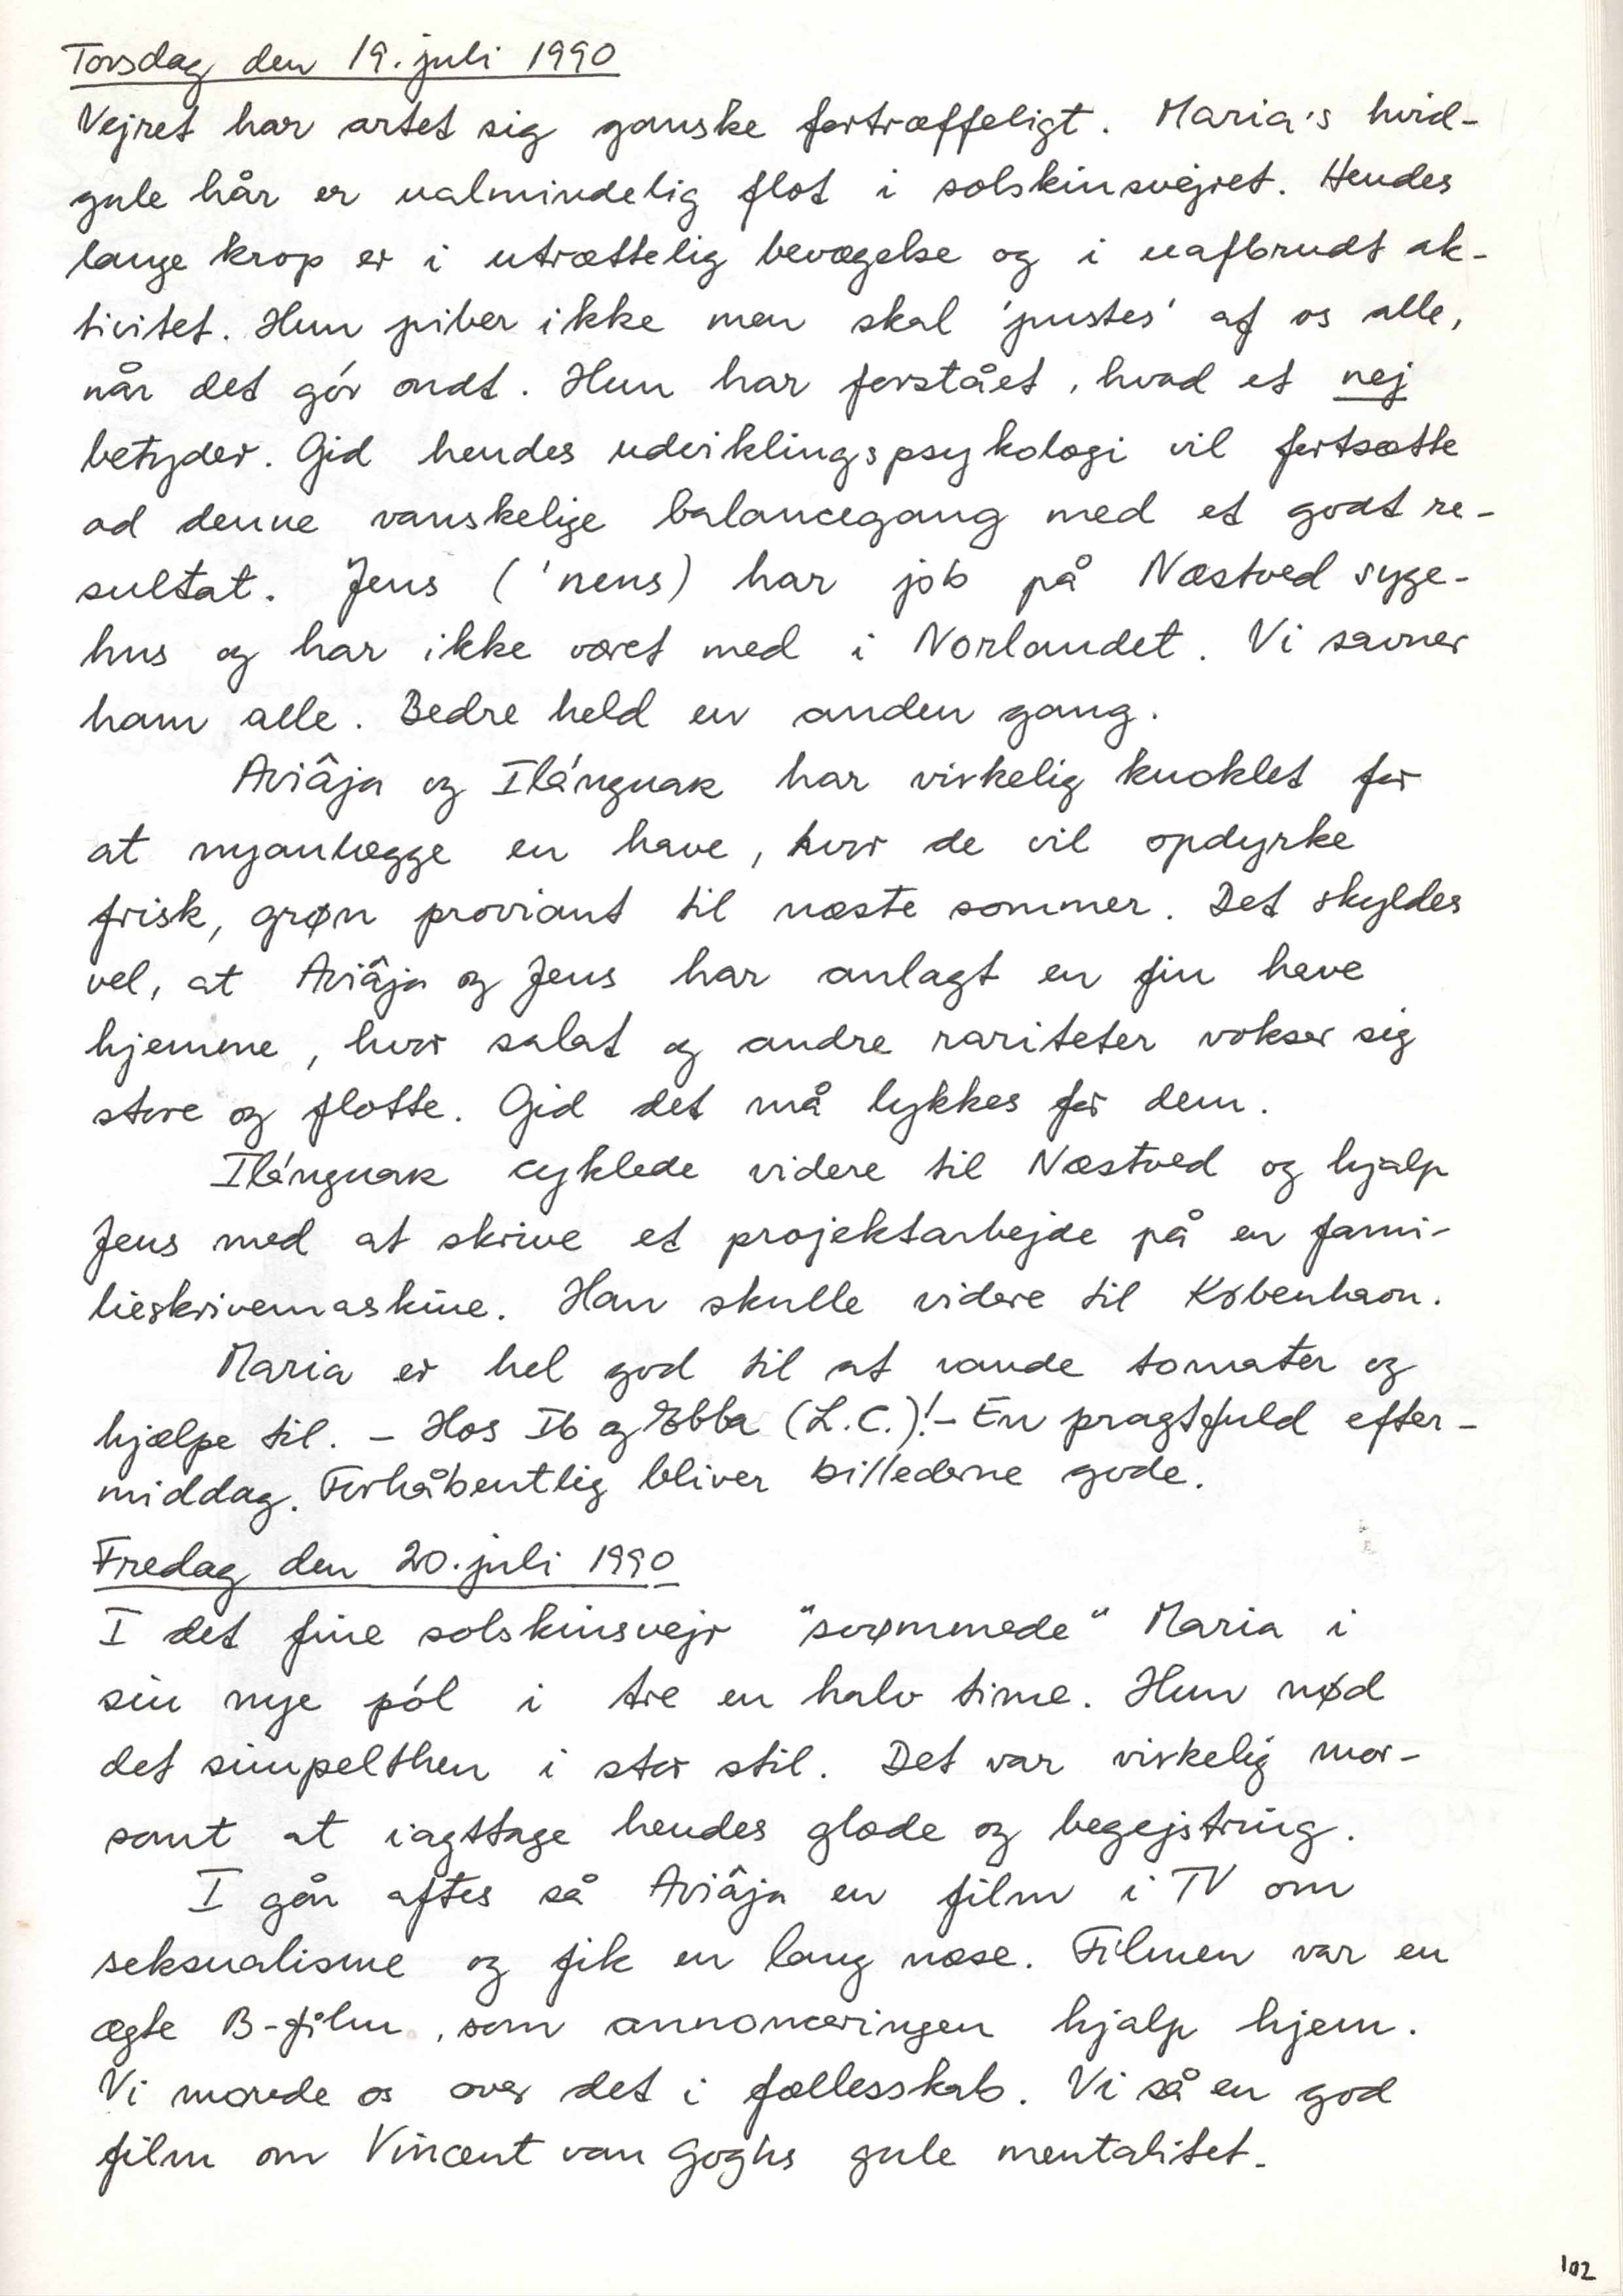 Torsdag den 19. juli 1990
Vejret har artet sig ganske fortræffeligt. Maria's hvid-
gule hår er ualmindelig flot i solskinsvejret. Hendes
lange krop er i utrættelig bevægelse og i uafbrudt ak-
tivitet. Hun piber ikke men skal 'pustes' af os alle,
når det gór ondt. Hun har forstået, hvad et nej
betyder. Gid hendes udviklingspsykologi vil fortsætte
ad denne vanskelige balancegang med et godt re-
sultat. Jens ('nens) har job på Næstved syge-
hus og har ikke været med i Norlandet. Vi savner
ham alle. Bedre held en anden gang.
Aviâja og Ilánguak har virkelig knoklet for
at nyanlægge en have, hvor de vil opdyrke
frisk, grøn proviant til næste sommer. Det skyldes
vel, at Aviâja og Jens har anlagt en fin have
hjemme, hvor salat og andre rariteter vokser sig
store og flotte. Gid det må lykkes for dem.
Ilánguak cyklede videre til Næstved og hjalp
Jens med at skrive et projektarbejde på en fami-
lieskrivemaskine. Han skulle videre til København.
Maria er hel god til at vande tomater og
hjælpe til. - Hos Ib og Ebba (L.C.)! - En pragtfuld efter-
middag. Forhåbentlig bliver billederne gode.
Fredag den 20. juli 1990
I det fine solskinsvejr "svømmede" Maria i
sin nye pól i tre en halv time. Hun nød
det simpelthen i stor stil. Det var virkelig mor-
somt at iagttage hendes glæde og begejstring.
I går aftes så Aviâja en film i TV om
seksualisme og fik en lang næse. Filmen var en
ægte B-film, som annonceringen hjalp hjem.
Vi morede os over det i fællesskab. Vi så en god
film om Vincent van Goghs gule mentalitet.
102